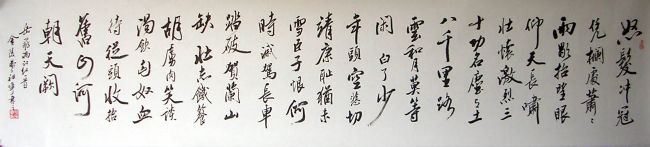 怒髮冲冠
凭欄處蕭々
雨歇抬望眼
仰天長嘯
壯懷激烈三
十功名塵与土
八千里路
雲和月莫等
閑白了少
年頭空悲切
靖康恥猶未
雪臣子恨何
時滅駕長車
踏破賀蘭山
缺壯志饑餐
胡虜肉笑談
渴飲匈奴血
待從頭收拾
舊山河
朝天闕
岳飛滿江紅一首
金陵